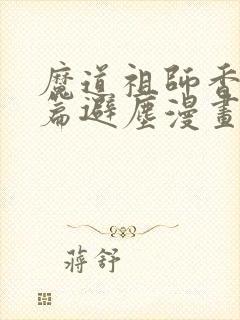 魔道祖師香
篇避塵漫畫
蔣舒